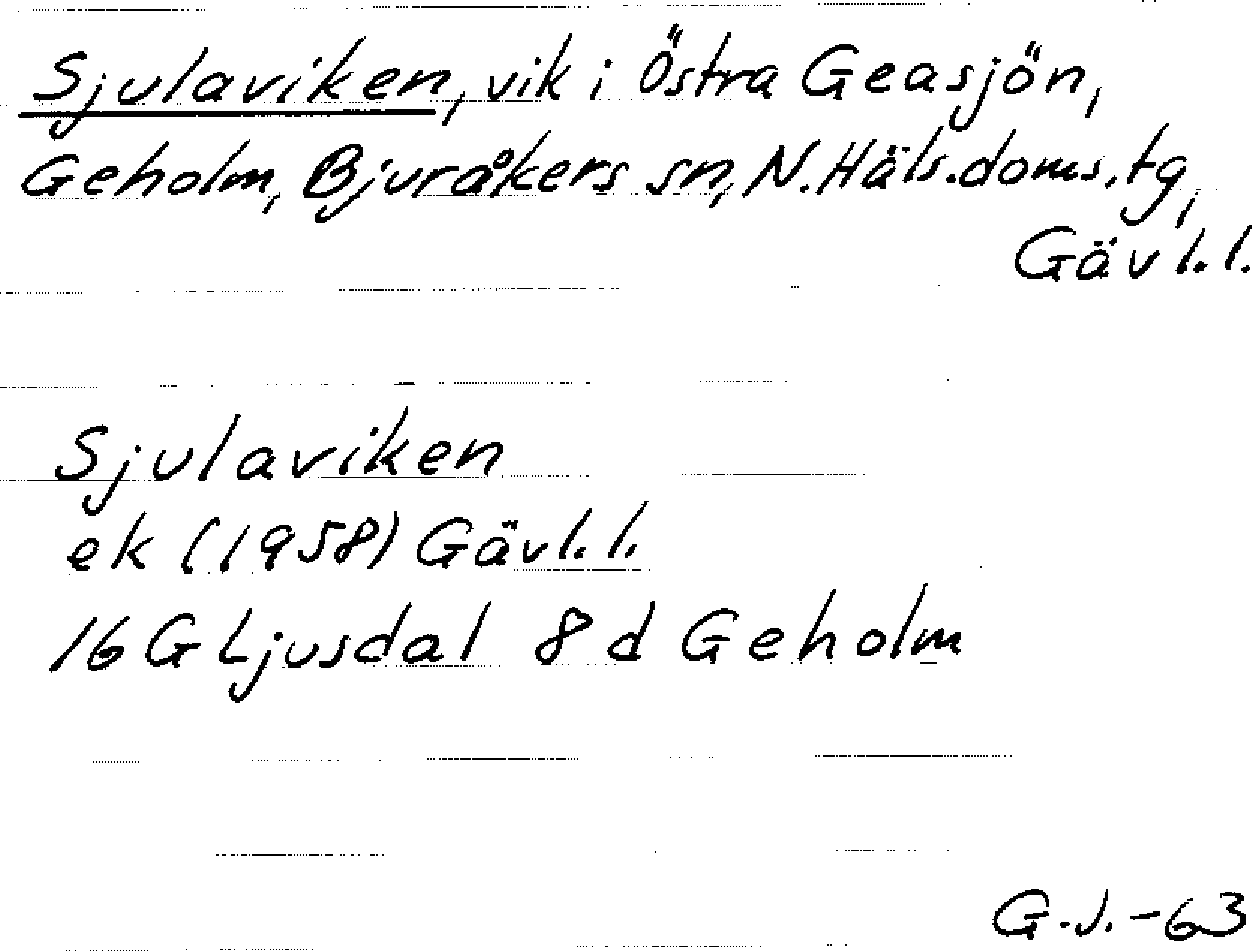 Sjulaviken, vik i Östra Geasjön,
Geholm, Bjuråkers sn, N. Häls. doms. tg,
Gävl. l.
Sjulaviken
ek (1958) Gävl. l.
16 G Ljusdal 8 d Geholm
G.J.-63